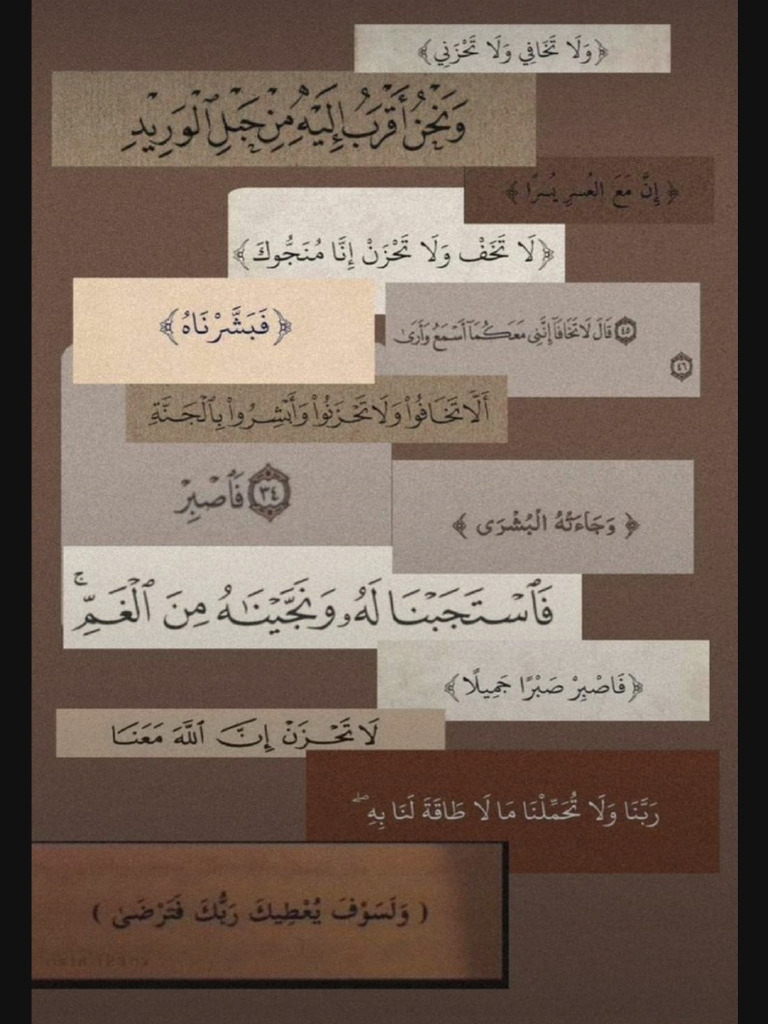 ﴿وَلَا تَخَافِي وَلَا تَحْزَنِي﴾
وَنَحْنُ أَقْرَبُ إِلَيْهِ مِنْ حَبْلِ ٱلْوَرِيدِ
﴿إِنَّ مَعَ العُسرِ يُسرًا﴾
﴿لَا تَخَفْ وَلَا تَحْزَنْ إِنَّا مُنَجُّوكَ﴾
﴿فَبَشَّرْنَاهُ﴾
٤٥ قَالَ لَا تَخَافَآ إِنَّنِى مَعَكُمَآ أَسْمَعُ وَأَرَىٰ
٤٦
أَلَّا تَخَافُوا۟ وَلَا تَحْزَنُوا۟ وَأَبْشِرُوا۟ بِٱلْجَنَّةِ
٣٤ فَٱصْبِرْ
﴿وَجَاءَتْهُ الْبُشْرَى﴾
فَٱسْتَجَبْنَا لَهُۥ وَنَجَّيْنَٰهُ مِنَ ٱلْغَمِّ ۚ
﴿فَاصْبِرْ صَبْرًا جَمِيلًا﴾
لَا تَحْزَنْ إِنَّ ٱللَّهَ مَعَنَا
رَبَّنَا وَلَا تُحَمِّلْنَا مَا لَا طَاقَةَ لَنَا بِهِۦ ۖ
( وَلَسَوْفَ يُعْطِيكَ رَبُّكَ فَتَرْضَىٰ )